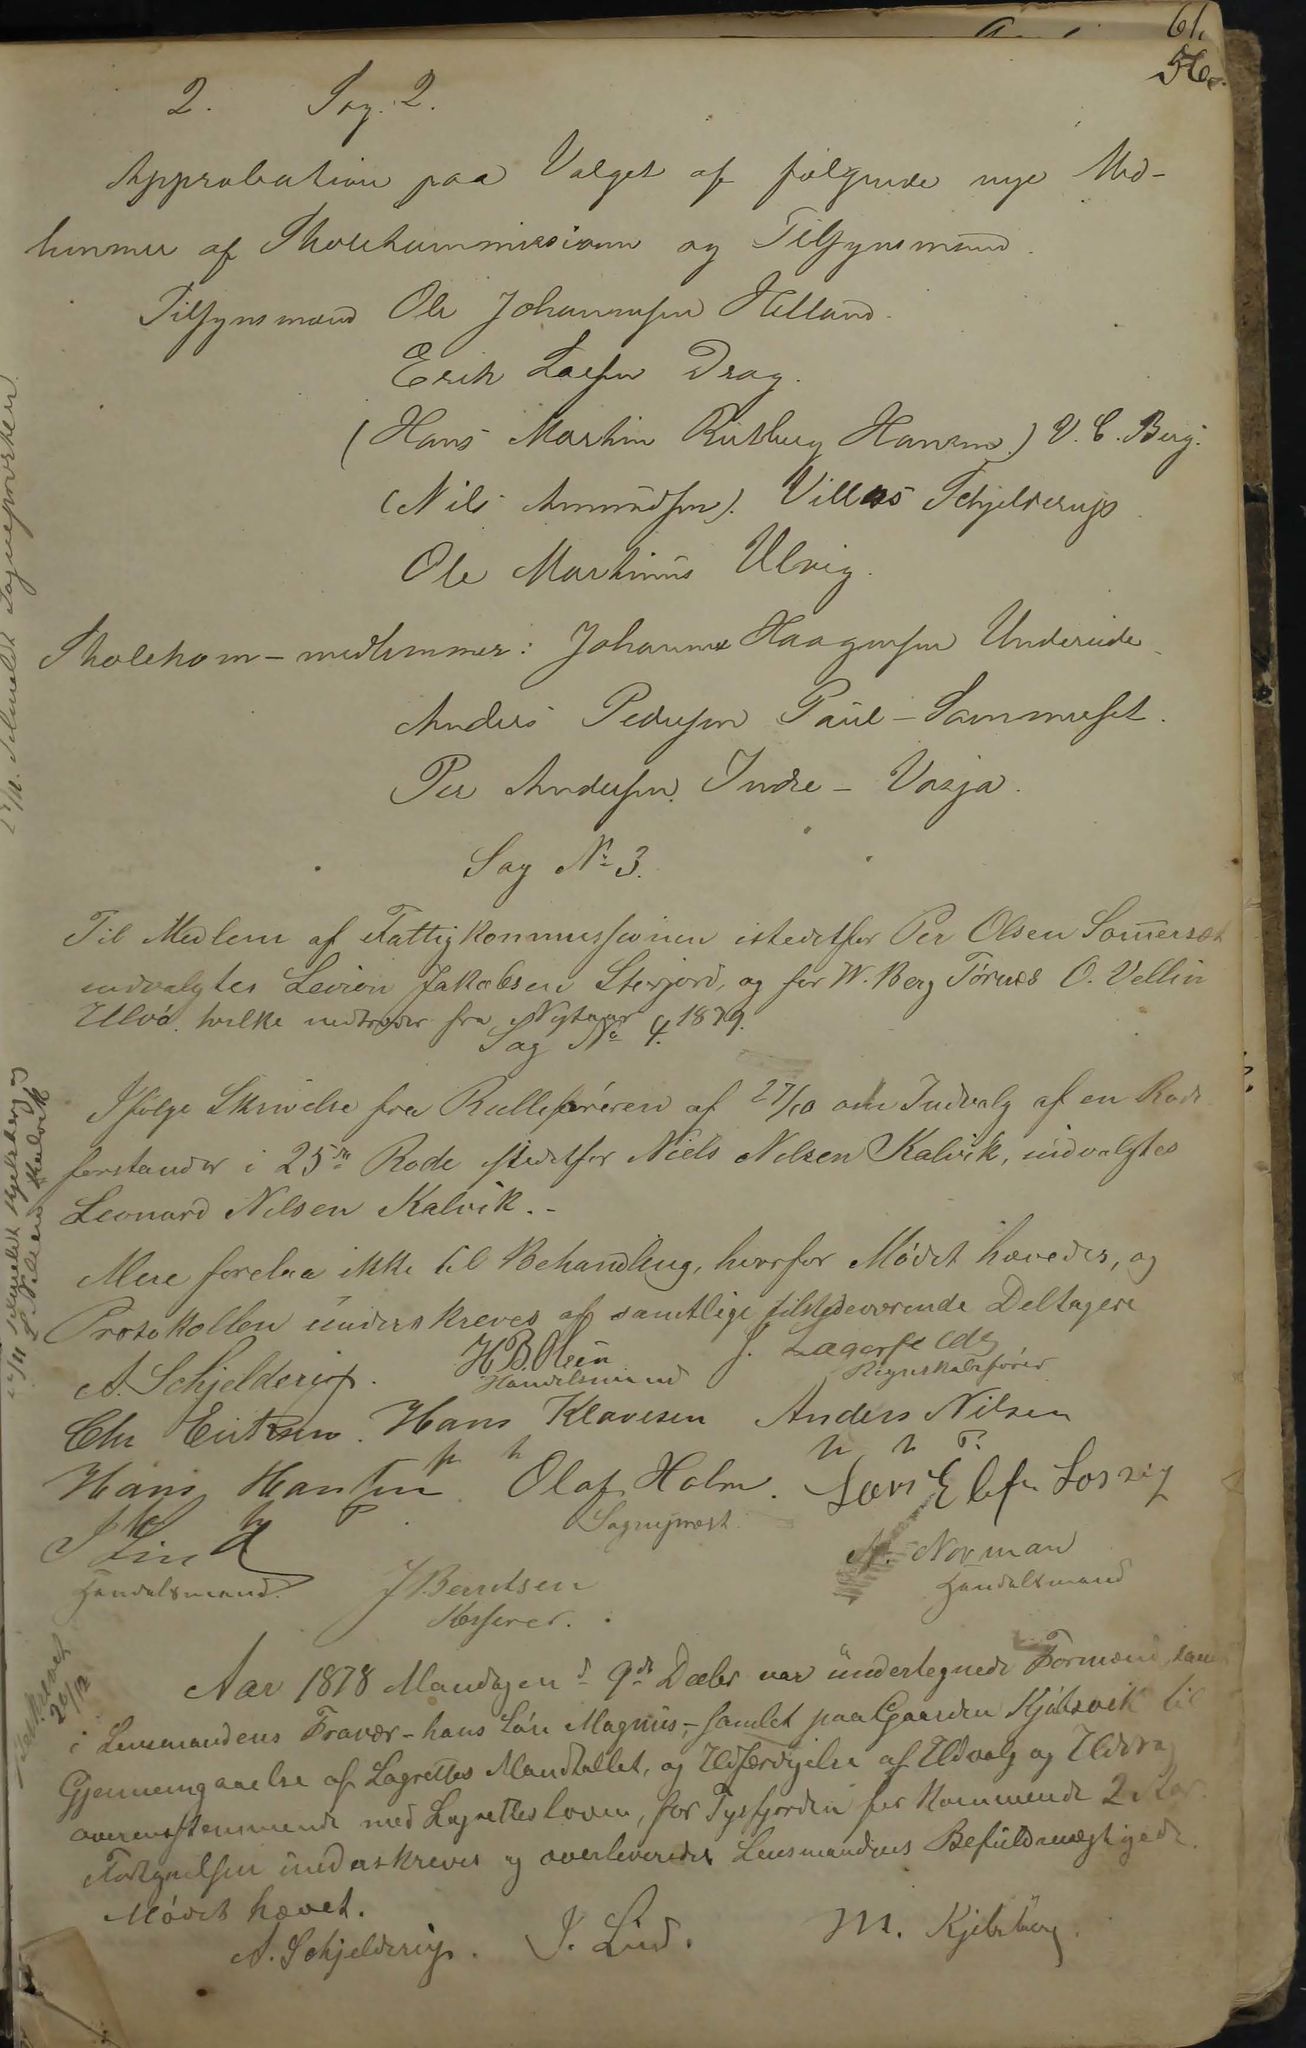 61.
56.
2. Sag. 2.
Approbation paa Valget af følgende nye Med-
lemmer af Skolekommissionen og Tilsynsmænd.
Tilsynsmænd Ole Johannesen Helland.
Erik Larsen Drag.
(Hans Martin Hansen.) V. C. Berg.
(Nils Amundsen). Villas Schjelderup.
Ole Martinus Ulvig.
Skolekom-medlemmer: Johannes Haagensen
Anders Pedersen Paul-Sommerset.
Per Andersen Indre-
Sag No 3.
Til Medlem af Fattigkommissionen istedetfor Per Olsen Sommerset
indvalgtes Jakobsen Stefjord, og for W. Berg O. Vellin
Ulvø. hvilke nedtræder fra Nytaar 1879.
Sag No 4.
Ifølge Skrivelse fra Rulleføreren af 27/10 om Indvalg af en Rode-
forstander i 25de Rode istedetfor Niels Nilsen Kalvik, indvalgtes
Leonard Nilsen Kalvik.-
Mere forelaa ikke til Behandling, hvorfor Mødet hævedes, og
Protokollen underskreves af samtlige tilstedeværende Deltagere
A. Schjelderup. H B. Olsen J. Lagerfeldt
Handelsmand Regnskabsfører
Chr Eriksen. Hans Klavesen Anders Nilsen
Hans Hansen Olaf Holm.
Sogneprest.
J Lind A. Norman
Handelsmand. J Berntsen Handelsmand
Kasserer.
Aar 1878 Mandagen d. 9de Decbr var undertegnede Formænd, samt
i Lensmandens Fravær - hans Søn Magnus, - samlet paa Gaarden Kjøbsvik til
Gjennemgaaelse af Lagrettes Mandtallet, og Udfærdigelse af Udvalg og Uddrag
overensstemmende med Lagrettesloven, for Tysfjorden for kommende 2 Aar.
Fortegnelsen underskreves og overleveredes Lensmandens Befuldmægtigede.
Mødet hævet.
A. Schjelderup. J. Lind. M. Kjelsberg.
Tilmeldt Sognepresten
tilmeldt Kjelsberg og
L. Nilsen Kalvik
20/12